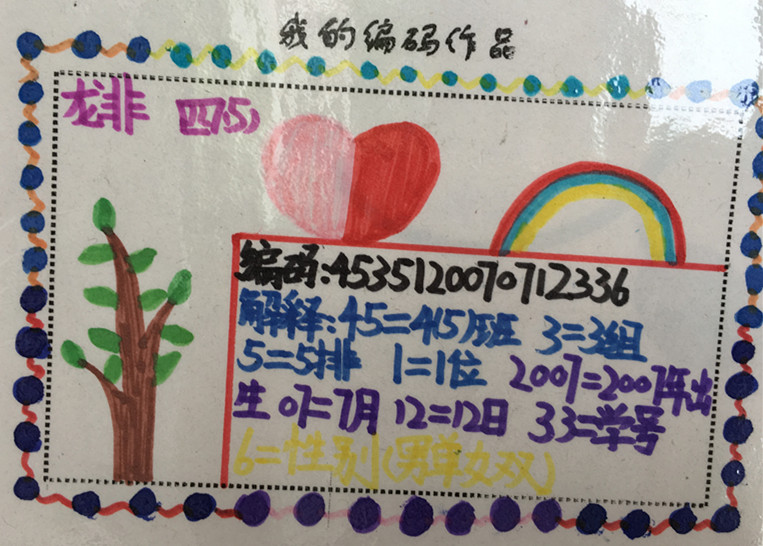 我的编码作品
龙菲 四(5)
编码:4535120070712336
解释:45=4(5)班 3=3组
5=5排 1=1位 2007=2007年出
生 07=7月 12=12日 33=学号
6=性别(男单女双)